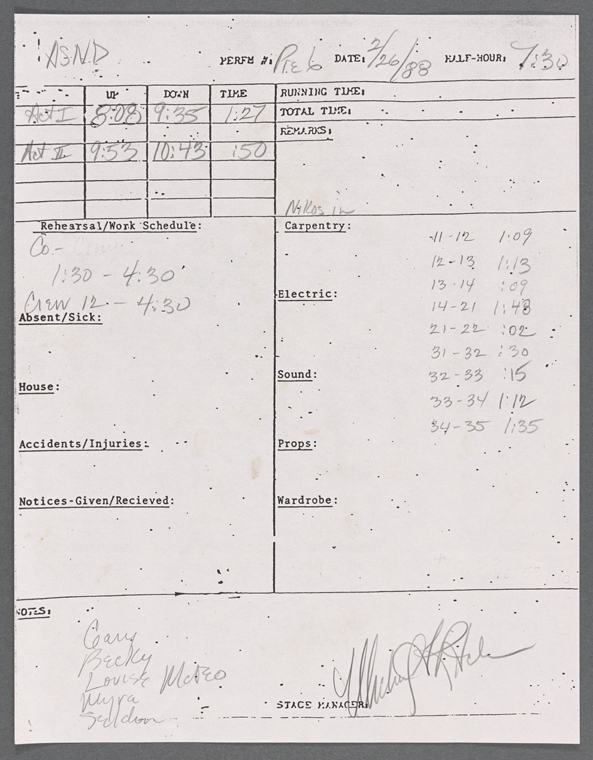 ASND PERFM #: Pre 6 DATE: 2/26/88 HALF-HOUR: 7:30
UP DOWN TIME RUNNING TIME:
Act I 8:08 9:35 1:27 TOTAL TIME:
REMARKS:
Act II 9:53 10:43 :50
Nikos in
Rehearsal/Work Schedule:
Co-
1:30 - 4:30
Crew 12 - 4:30
Absent/Sick:
House:
Accidents/Injuries:
Notices-Given/Recieved:
Carpentry:
11-12 1:09
12-13 1:13
13-14 :09
Electric:
14-21 1:48
21-22 :02
31-32 :30
Sound:
32-33 :15
33-34 1:12
34-35 1:35
Props:
Wardrobe:
OTES:
Gary
Becky
Louise McTeo
Myra
Seldon
STAGE MANAGER: